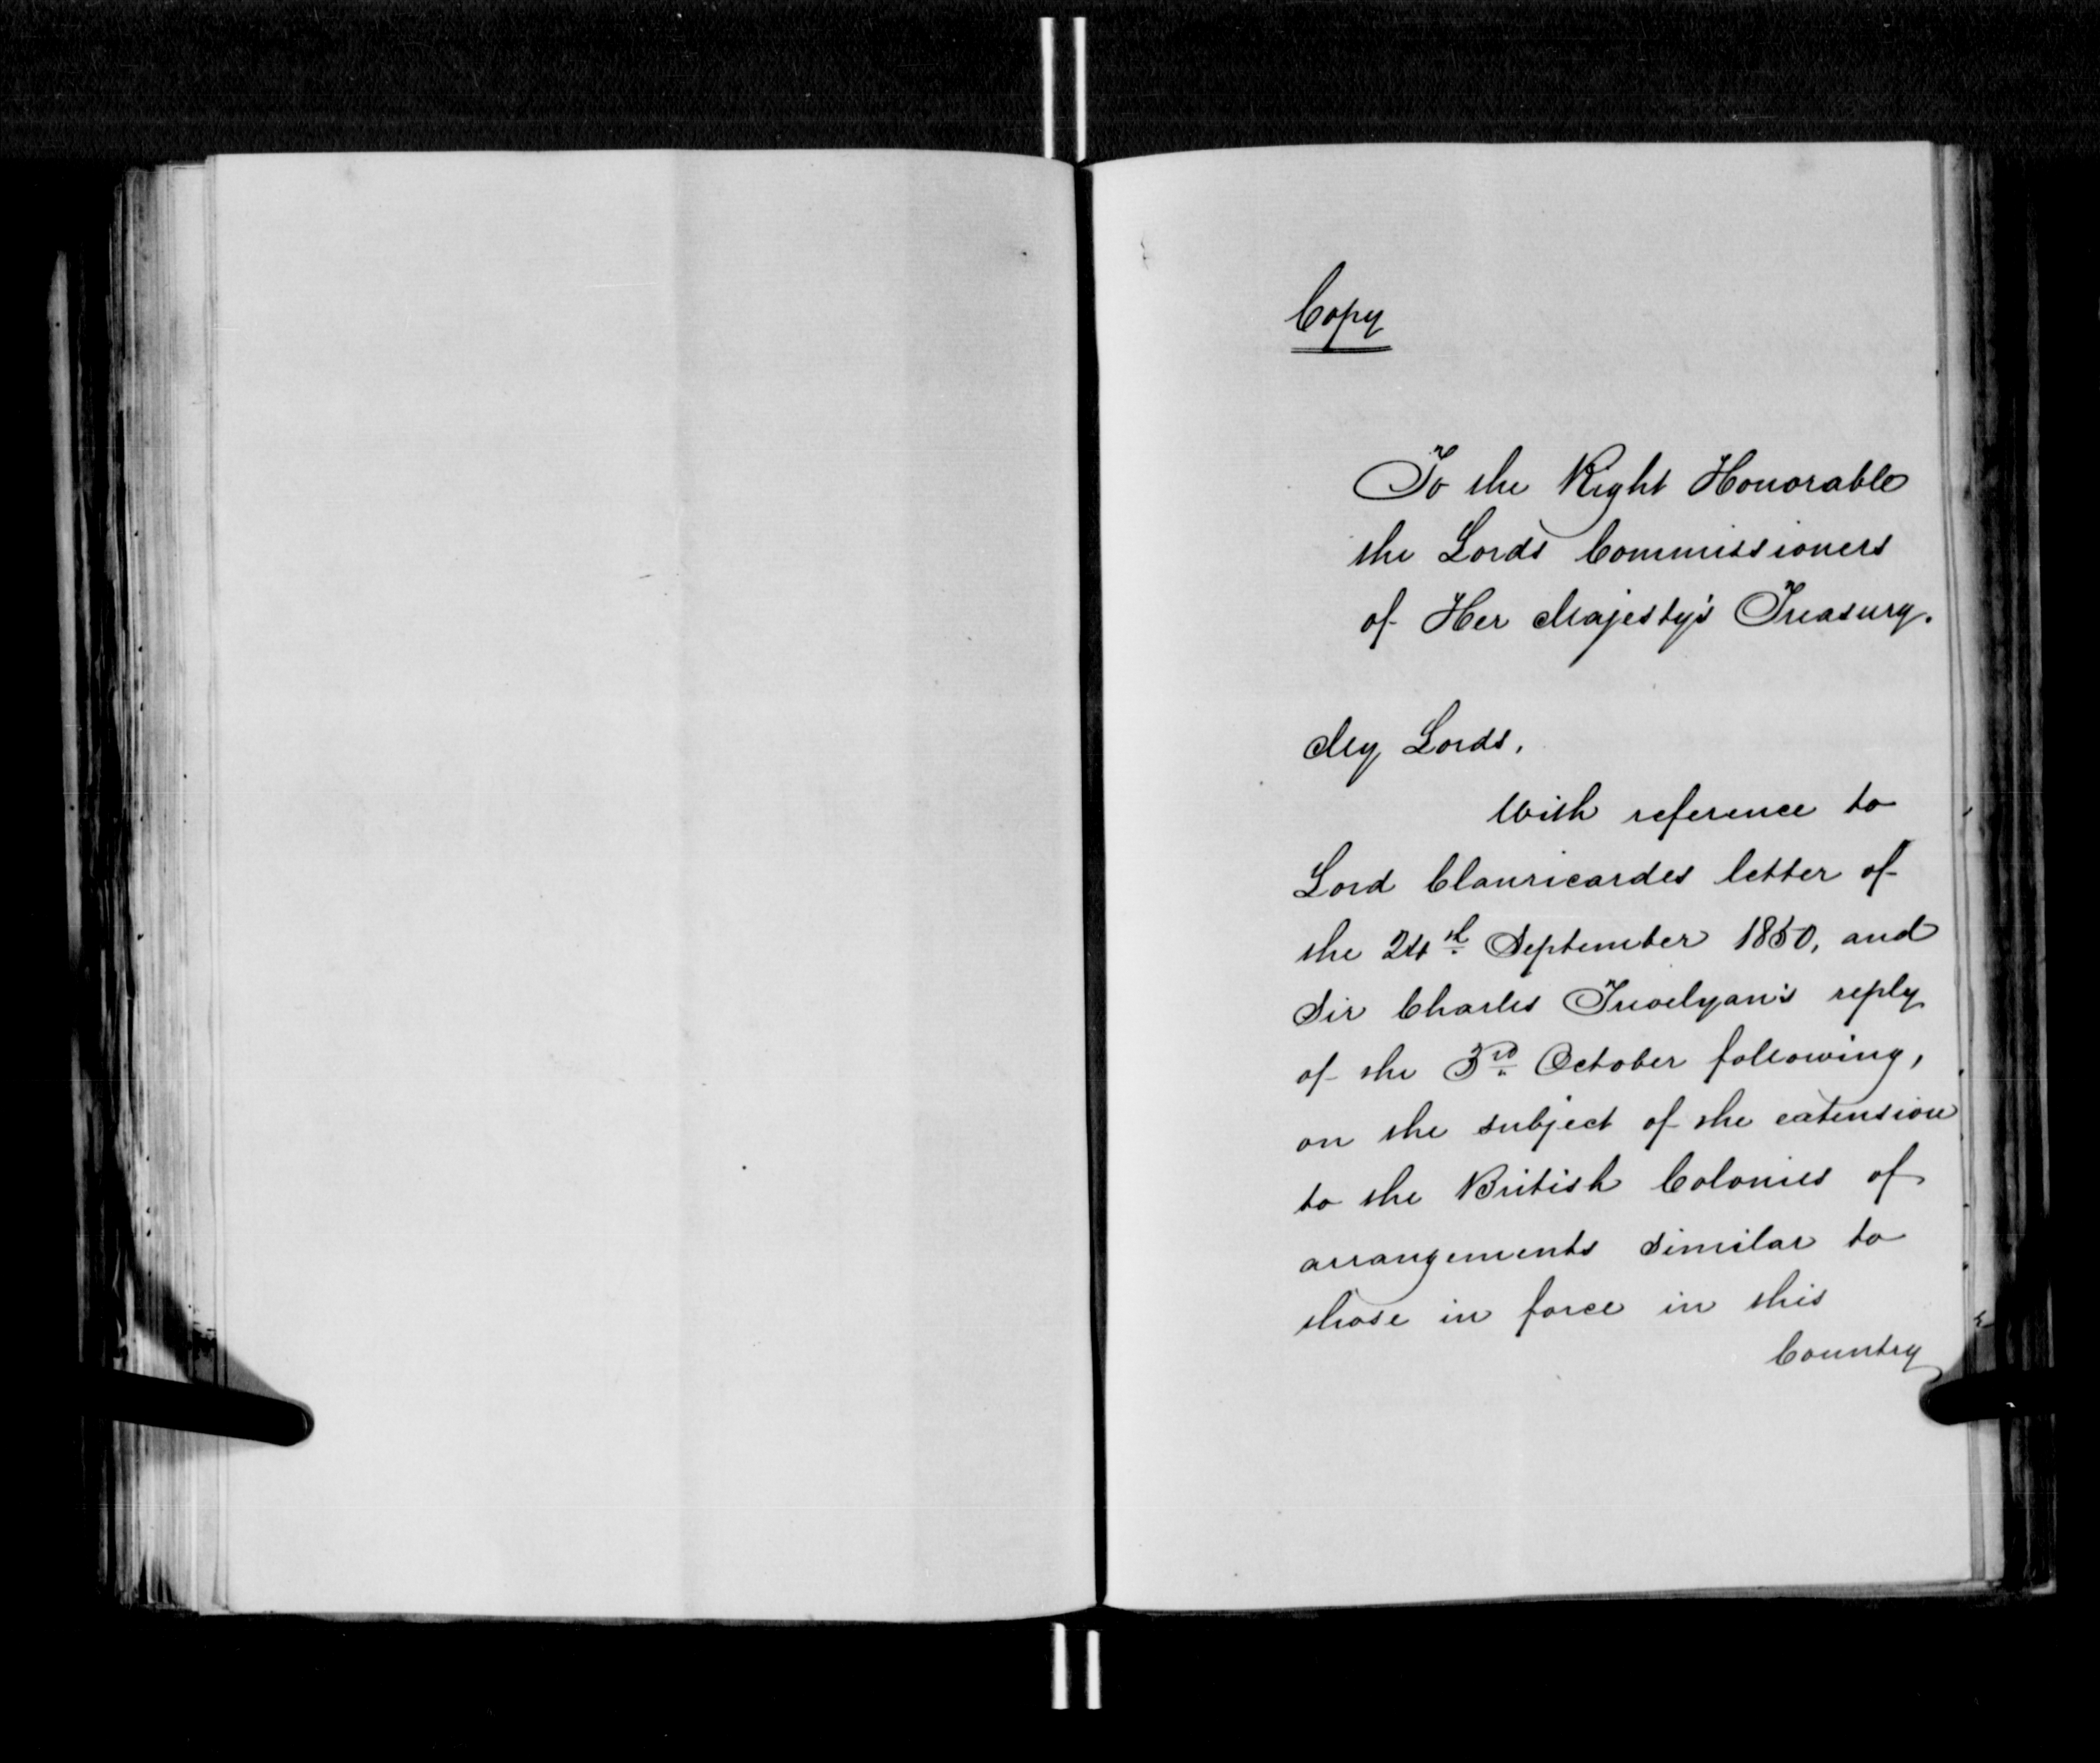 Copy
To the Right Honorable
the Lords Commissioners
of Her Majesty's Treasury.
My Lords,
With reference to
Lord Clanricardes letter of
the 24th September 1850, and
Sir Charles Trevelyan's reply
of the 3rd October following,
on the subject of the extension
to the British Colonies of
arrangements similar to
those in force in this
Country